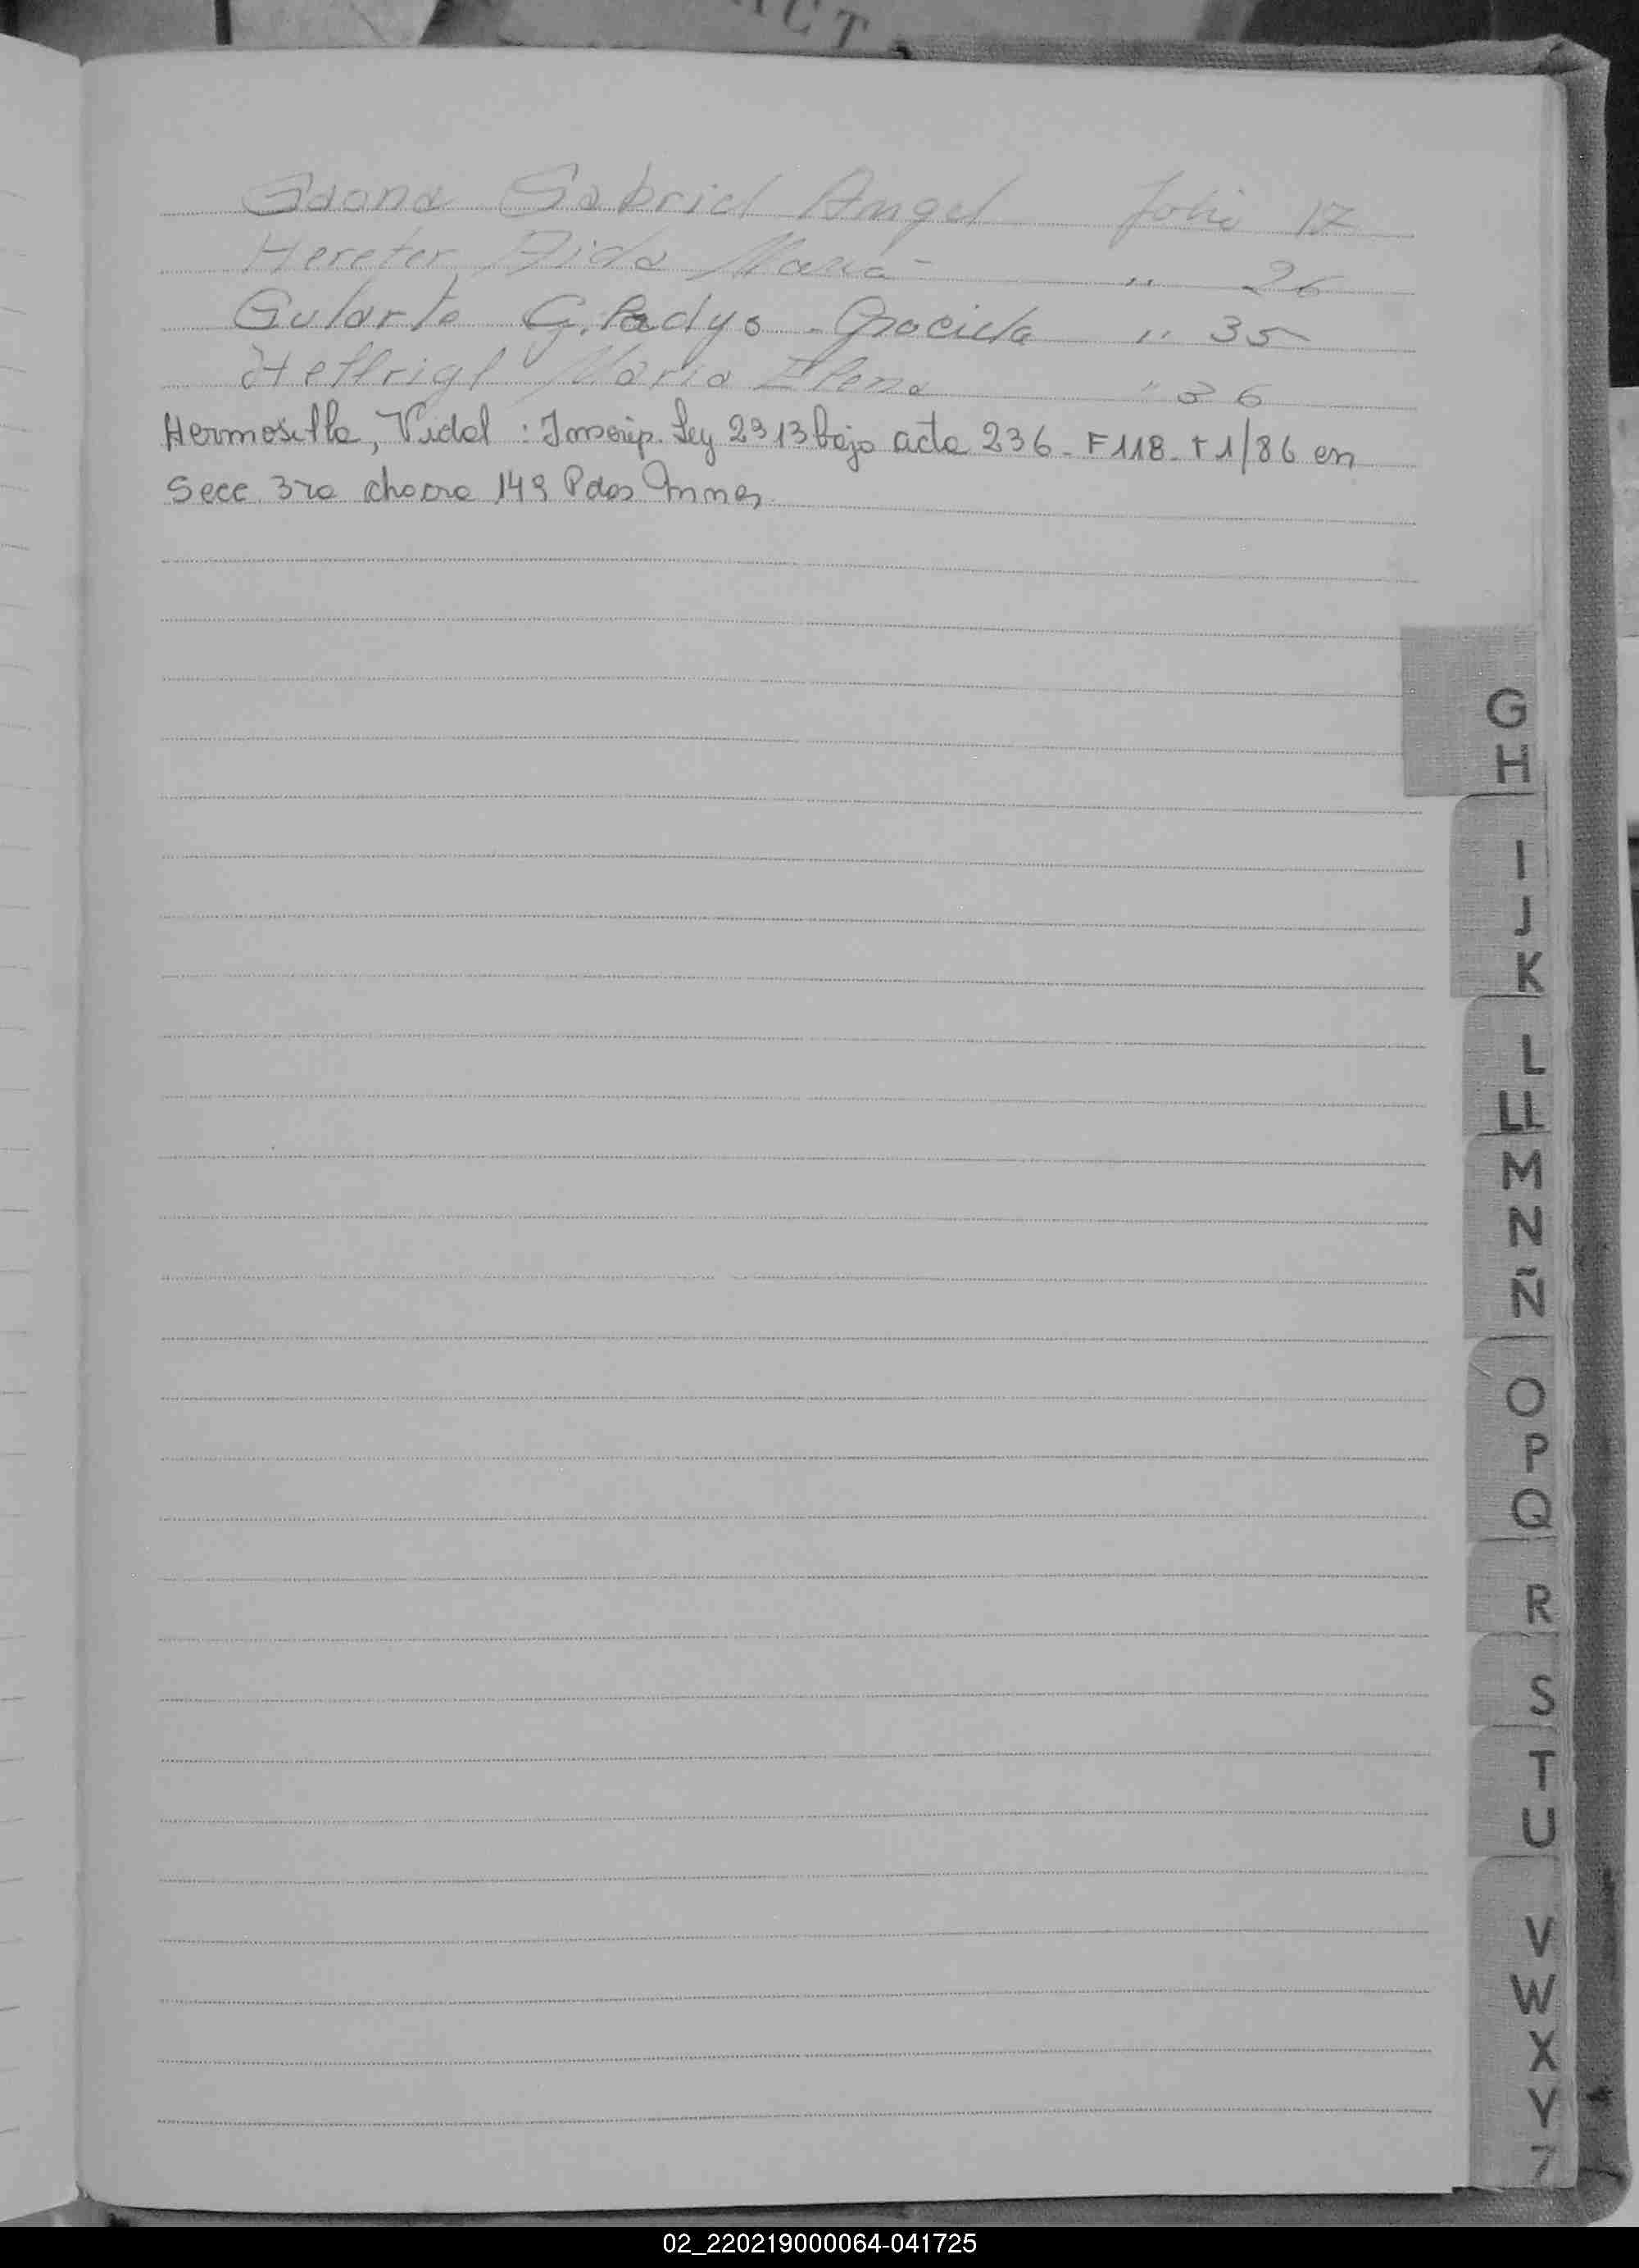 ACT
Gaona Gabriel Angel Folio 17
Hereter, Aida Maria " 26
Gularte Gladys Graciela " 35
Heffrigl Maria Elena " 36
Hermosilla, Vidal : Inscrip. Ley 2913 bajo acta 236 - F 118 - t 1/86 en
Secc 3ra chacra 149 Pdas
G
H
I
J
K
L
LL
M
N
Ñ
O
P
Q
R
S
T
U
V
W
X
Y
Z
02_220219000064-041725